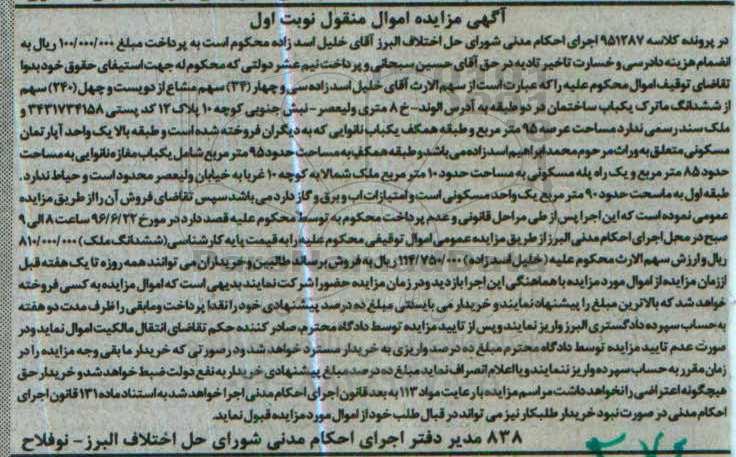 آگهی مزایده اموال منقول نوبت اول
در پرونده کلاسه ۹۵۱۲۸۷ اجرای احکام مدنی شورای حل اختلاف البرز آقای خلیل اسد زاده محکوم است به پرداخت مبلغ ۱۰۰/۰۰۰/۰۰۰ ریال به
انضمام هزینه دادرسی و خسارت تاخیر تادیه در حق آقای حسین سبحانی و پرداخت نیم عشر دولتی که محکوم له جهت استیفای حقوق خود بدوا
تقاضای توقیف اموال محکوم علیه را که عبارت است از سهم الارث آقای خلیل اسدزاده سی و چهار (۳۴) سهم مشاع از دویست و چهل (۲۴۰) سهم
از ششدانگ ماترک یکباب ساختمان در دو طبقه به آدرس الوند- خ ۸ متری ولیعصر - نبش جنوبی کوچه ۱۰ پلاک ۱۲ کد پستی ۳۴۳۱۷۳۴۱۵۸ و
ملک سند رسمی ندارد مساحت عرصه ۹۵ متر مربع و طبقه همکف یکباب نانوایی که به دیگران فروخته شده است و طبقه بالا یک واحد آپارتمان
مسکونی متعلق به وراث مرحوم محمدابراهیم اسدزاده می باشد و طبقه همکف به مساحت حدود ۹۵ متر مربع شامل یکباب مغازه نانوایی به مساحت
حدود ۸۵ متر مربع و یک راه پله مسکونی به مساحت حدود ۱۰ متر مربع ملک شمالا به کوچه ۱۰ غربا به خیابان ولیعصر محدود است و حیاط ندارد.
طبقه اول به ماسحت حدود ۹۰ متر مربع یک واحد مسکونی است و امتیازات اب و برق و گاز دارد می باشد سپس تقاضای فروش آن را از طریق مزایده
عمومی نموده است که این اجرا پس از طی مراحل قانونی و عدم پرداخت محکوم به توسط محکوم علیه قصد دارد در مورخ ۹۶/۶/۲۲ ساعت ۸ الی ۹
صبح در محل اجرای احکام مدنی البرز از طریق مزایده عمومی اموال توقیفی محکوم علیه را به قیمت پایه کارشناسی (ششدانگ ملک) ۸۱۰/۰۰۰/۰۰۰
ریال و ارزش سهم الارث محکوم علیه (خلیل اسدزاده) ۱۱۴/۷۵۰/۰۰۰ ریال به فروش برساند طالبین و خریداران می توانند همه روزه تا یک هفته قبل
از زمان مزایده از اموال مورد مزایده با هماهنگی این اجرا بازدید و در زمان مزایده حضورا شرکت نمایند بدیهی است که اموال مزایده به کسی فروخته
خواهد شد که بالاترین مبلغ را پیشنهاد نمایند و خریدار می بایستی مبلغ ده درصد پیشنهادی خود را نقدا پرداخت و مابقی را ظرف مدت دو هفته
به حساب سپرده دادگستری البرز واریز نمایند و پس از تایید مزایده توسط دادگاه محترم، صادر کننده حکم تقاضای انتقال مالکیت اموال نماید و در
صورت عدم تایید مزایده توسط دادگاه محترم مبلغ ده درصد واریزی به خریدار مسترد خواهد شد و در صورتی که خریدار مابقی وجه مزایده را در
زمان مقرر به حساب سپرده واریز ننمایند و یا اعلام انصراف نماید مبلغ ده درصد مبلغ پیشنهادی خریدار به نفع دولت ضبط خواهد شد و خریدار حق
هیچگونه اعتراضی را نخواهد داشت مراسم مزایده با رعایت مواد ۱۱۳ به بعد قانون اجرای احکام مدنی اجرا خواهد شد به استناد ماده ۱۳۱ قانون اجرای
احکام مدنی در صورت نبود خریدار طلبکار نیز می تواند در قبال طلب خود از اموال مورد مزایده قبول نماید.
۸۳۸ مدیر دفتر اجرای احکام مدنی شورای حل اختلاف البرز - نوفلاح